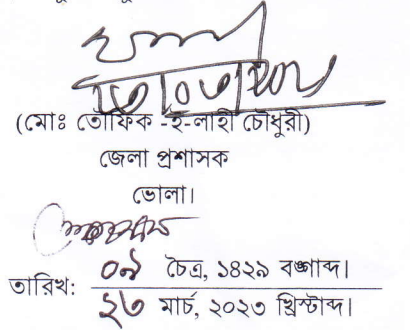 (মোঃ তৌফিক -ই-লাহী চৌধুরী)
জেলা প্রশাসক
ভোলা।
০৯ চৈত্র, ১৪২৯ বঙ্গাব্দ।
তারিখ:
২৩ মার্চ, ২০২৩ খ্রিস্টাব্দ।